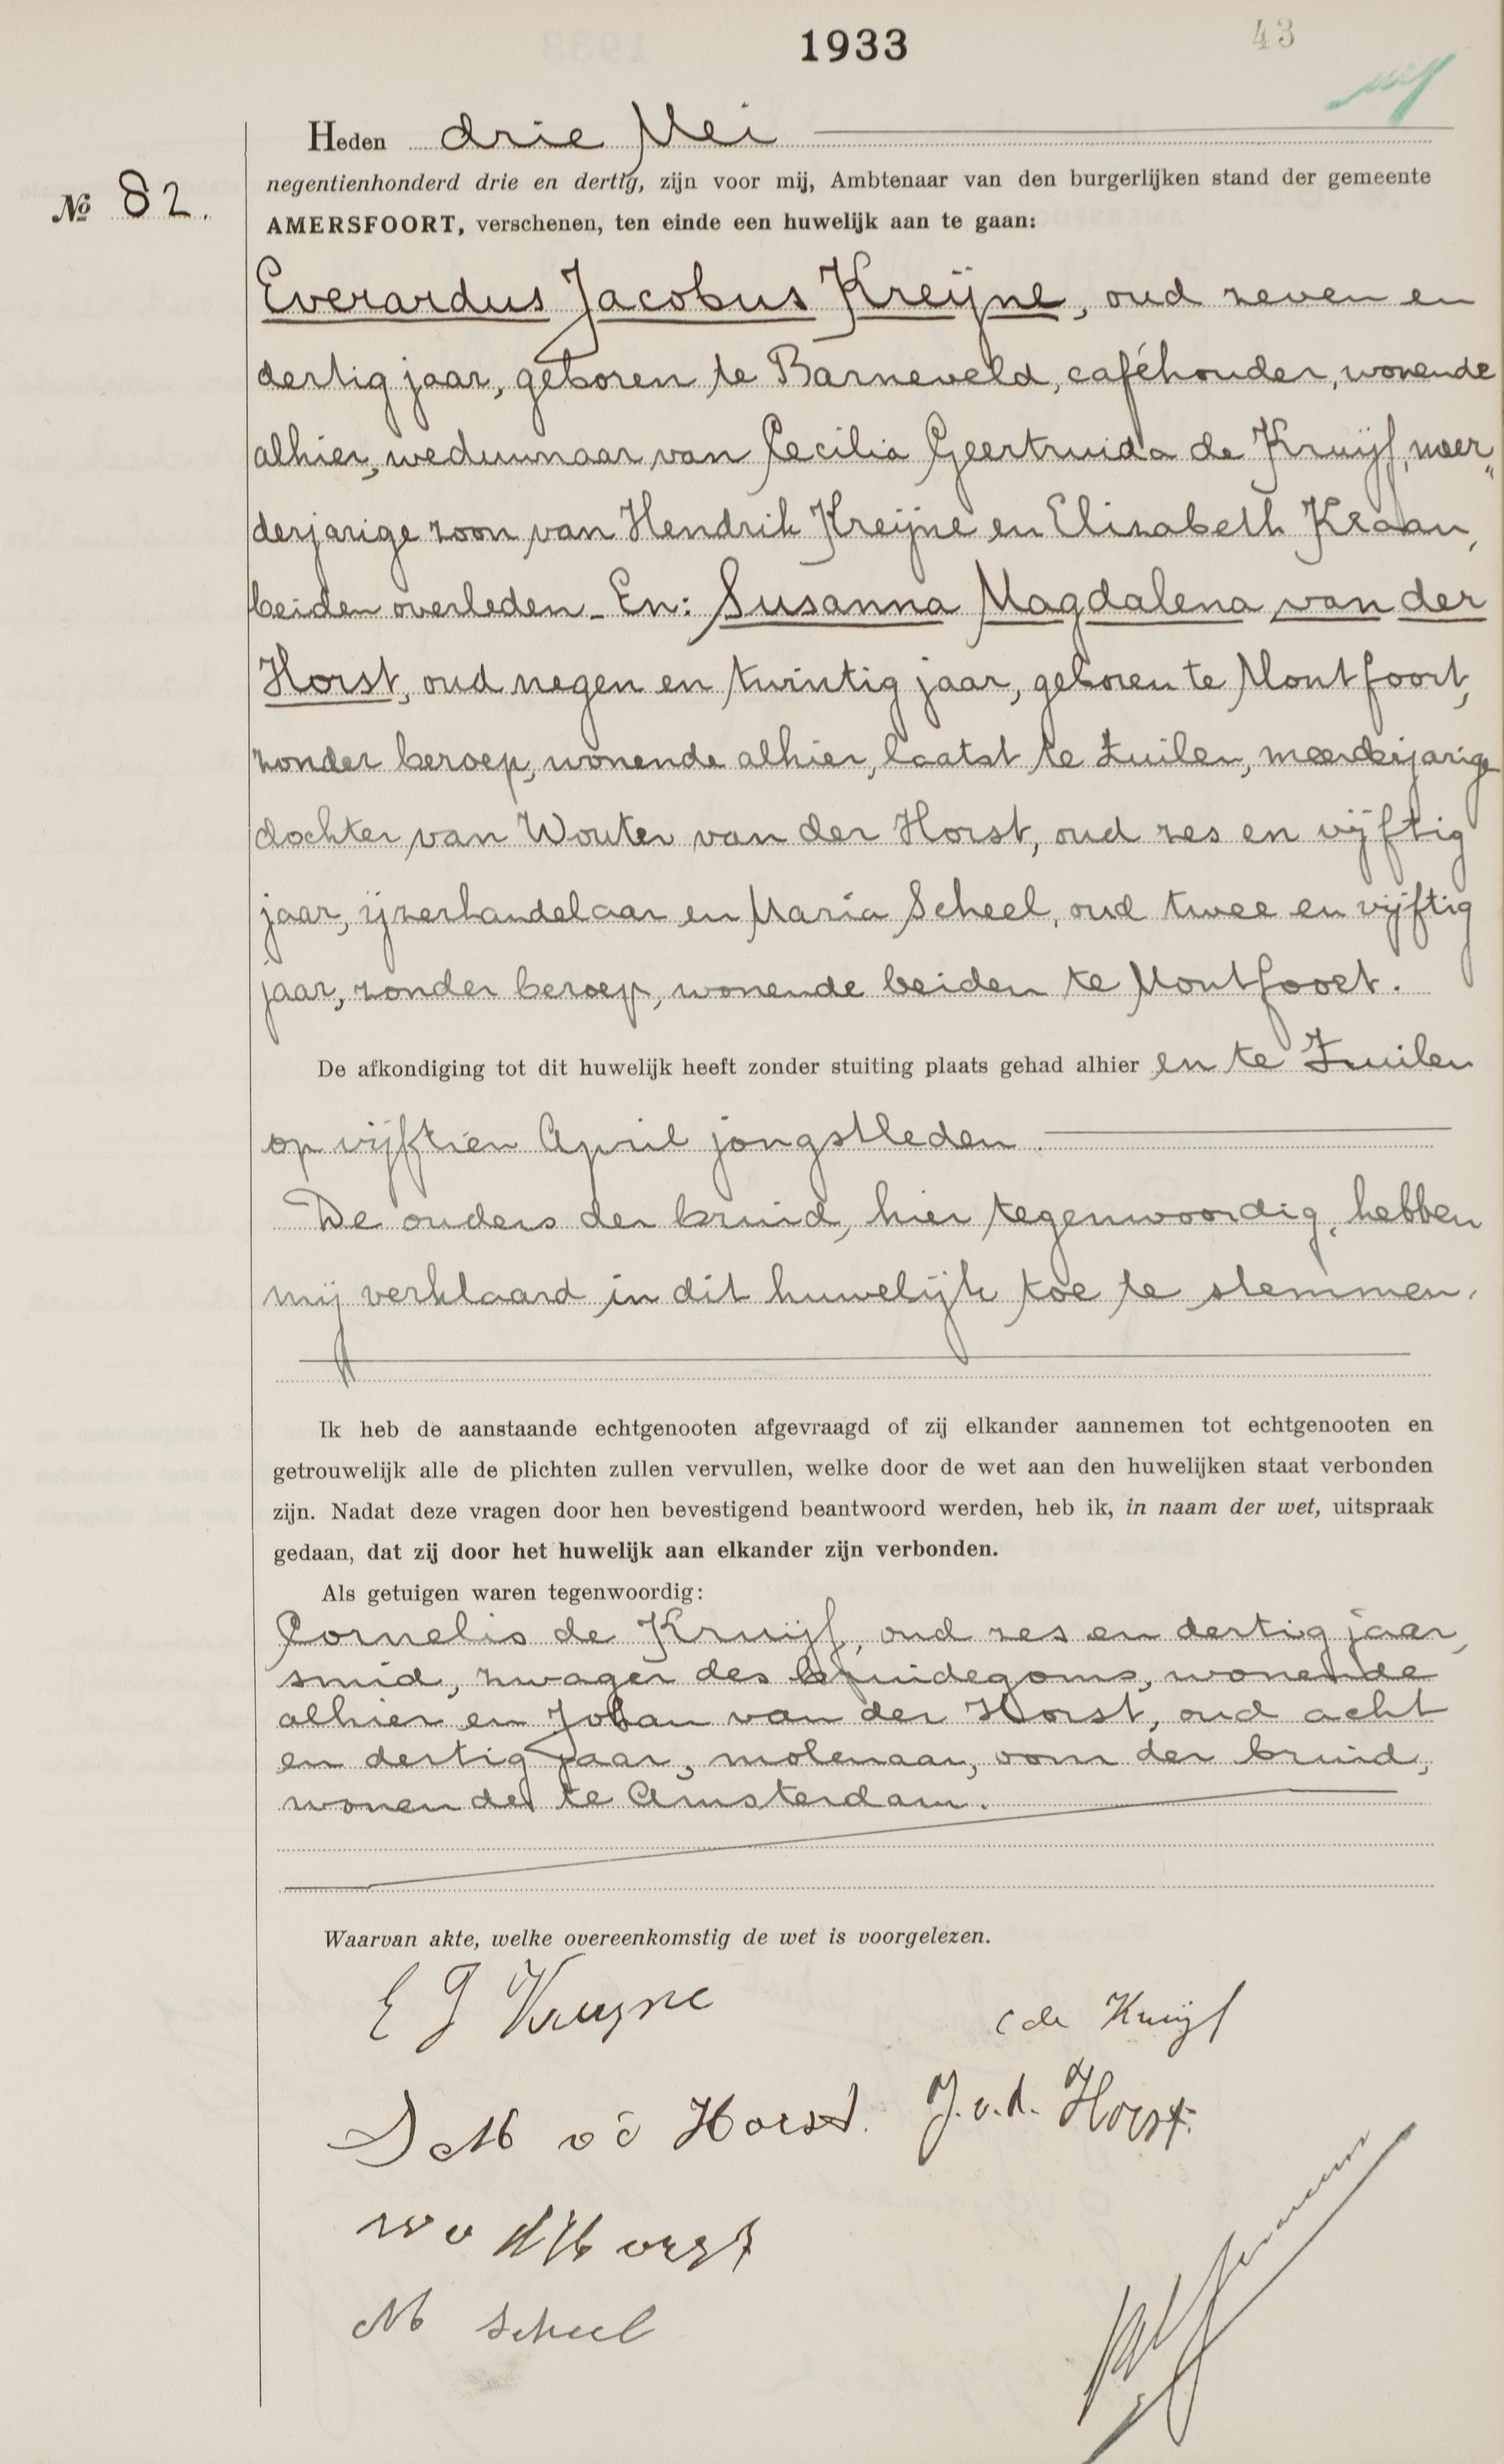 1933
43
Heden drie Mei
negentienhonderd drie en dertig, zijn voor mij, Ambtenaar van den burgerlijken stand der gemeente
№ 82.
AMERSFOORT, verschenen, ten einde een huwelijk aan te gaan:
Everardus Jacobus Kreijne, oud zeven en
dertig jaar, geboren te Barneveld, caféhouder, wonende
alhier, weduwnaar van Cecilia Geertruida de Kruijf, meer„
derjarige zoon van Hendrik Kreijne en Elizabeth Kraan,
beiden overleden. En: Susanna Magdalena van der
Horst, oud negen en twintig jaar, geboren te Montfoort,
zonder beroep, wonende alhier, laatst te Zuilen, meerderjarige
dochter van Wouter van der Horst, oud zes en vijftig
jaar, ijzerhandelaar en Maria Scheel, oud twee en vijftig
jaar, zonder beroep, wonende beiden te Montfoort.
De afkondiging tot dit huwelijk heeft zonder stuiting plaats gehad alhier en te Zuilen
op vijftien April jongstleden.
De ouders der bruid, hier tegenwoordig, hebben
mij verklaard in dit huwelijk toe te stemmen.
Ik heb de aanstaande echtgenooten afgevraagd of zij elkander aannemen tot echtgenooten en
getrouwelijk alle de plichten zullen vervullen, welke door de wet aan den huwelijken staat verbonden
zijn. Nadat deze vragen door hen bevestigend beantwoord werden, heb ik, in naam der wet, uitspraak
gedaan, dat zij door het huwelijk aan elkander zijn verbonden.
Als getuigen waren tegenwoordig:
Cornelis de Kruijf, oud zes en dertig jaar,
smid, zwager des bruidegoms, wonende
alhier en Johan van der Horst, oud acht
en dertig jaar, molenaar, oom der bruid,
wonende te Amsterdam.
Waarvan akte, welke overeenkomstig de wet is voorgelezen.
E J Kreijne
C de Kruijf
S M v d Horst.
J. v. d. Horst.
W v d Horst
M Scheel